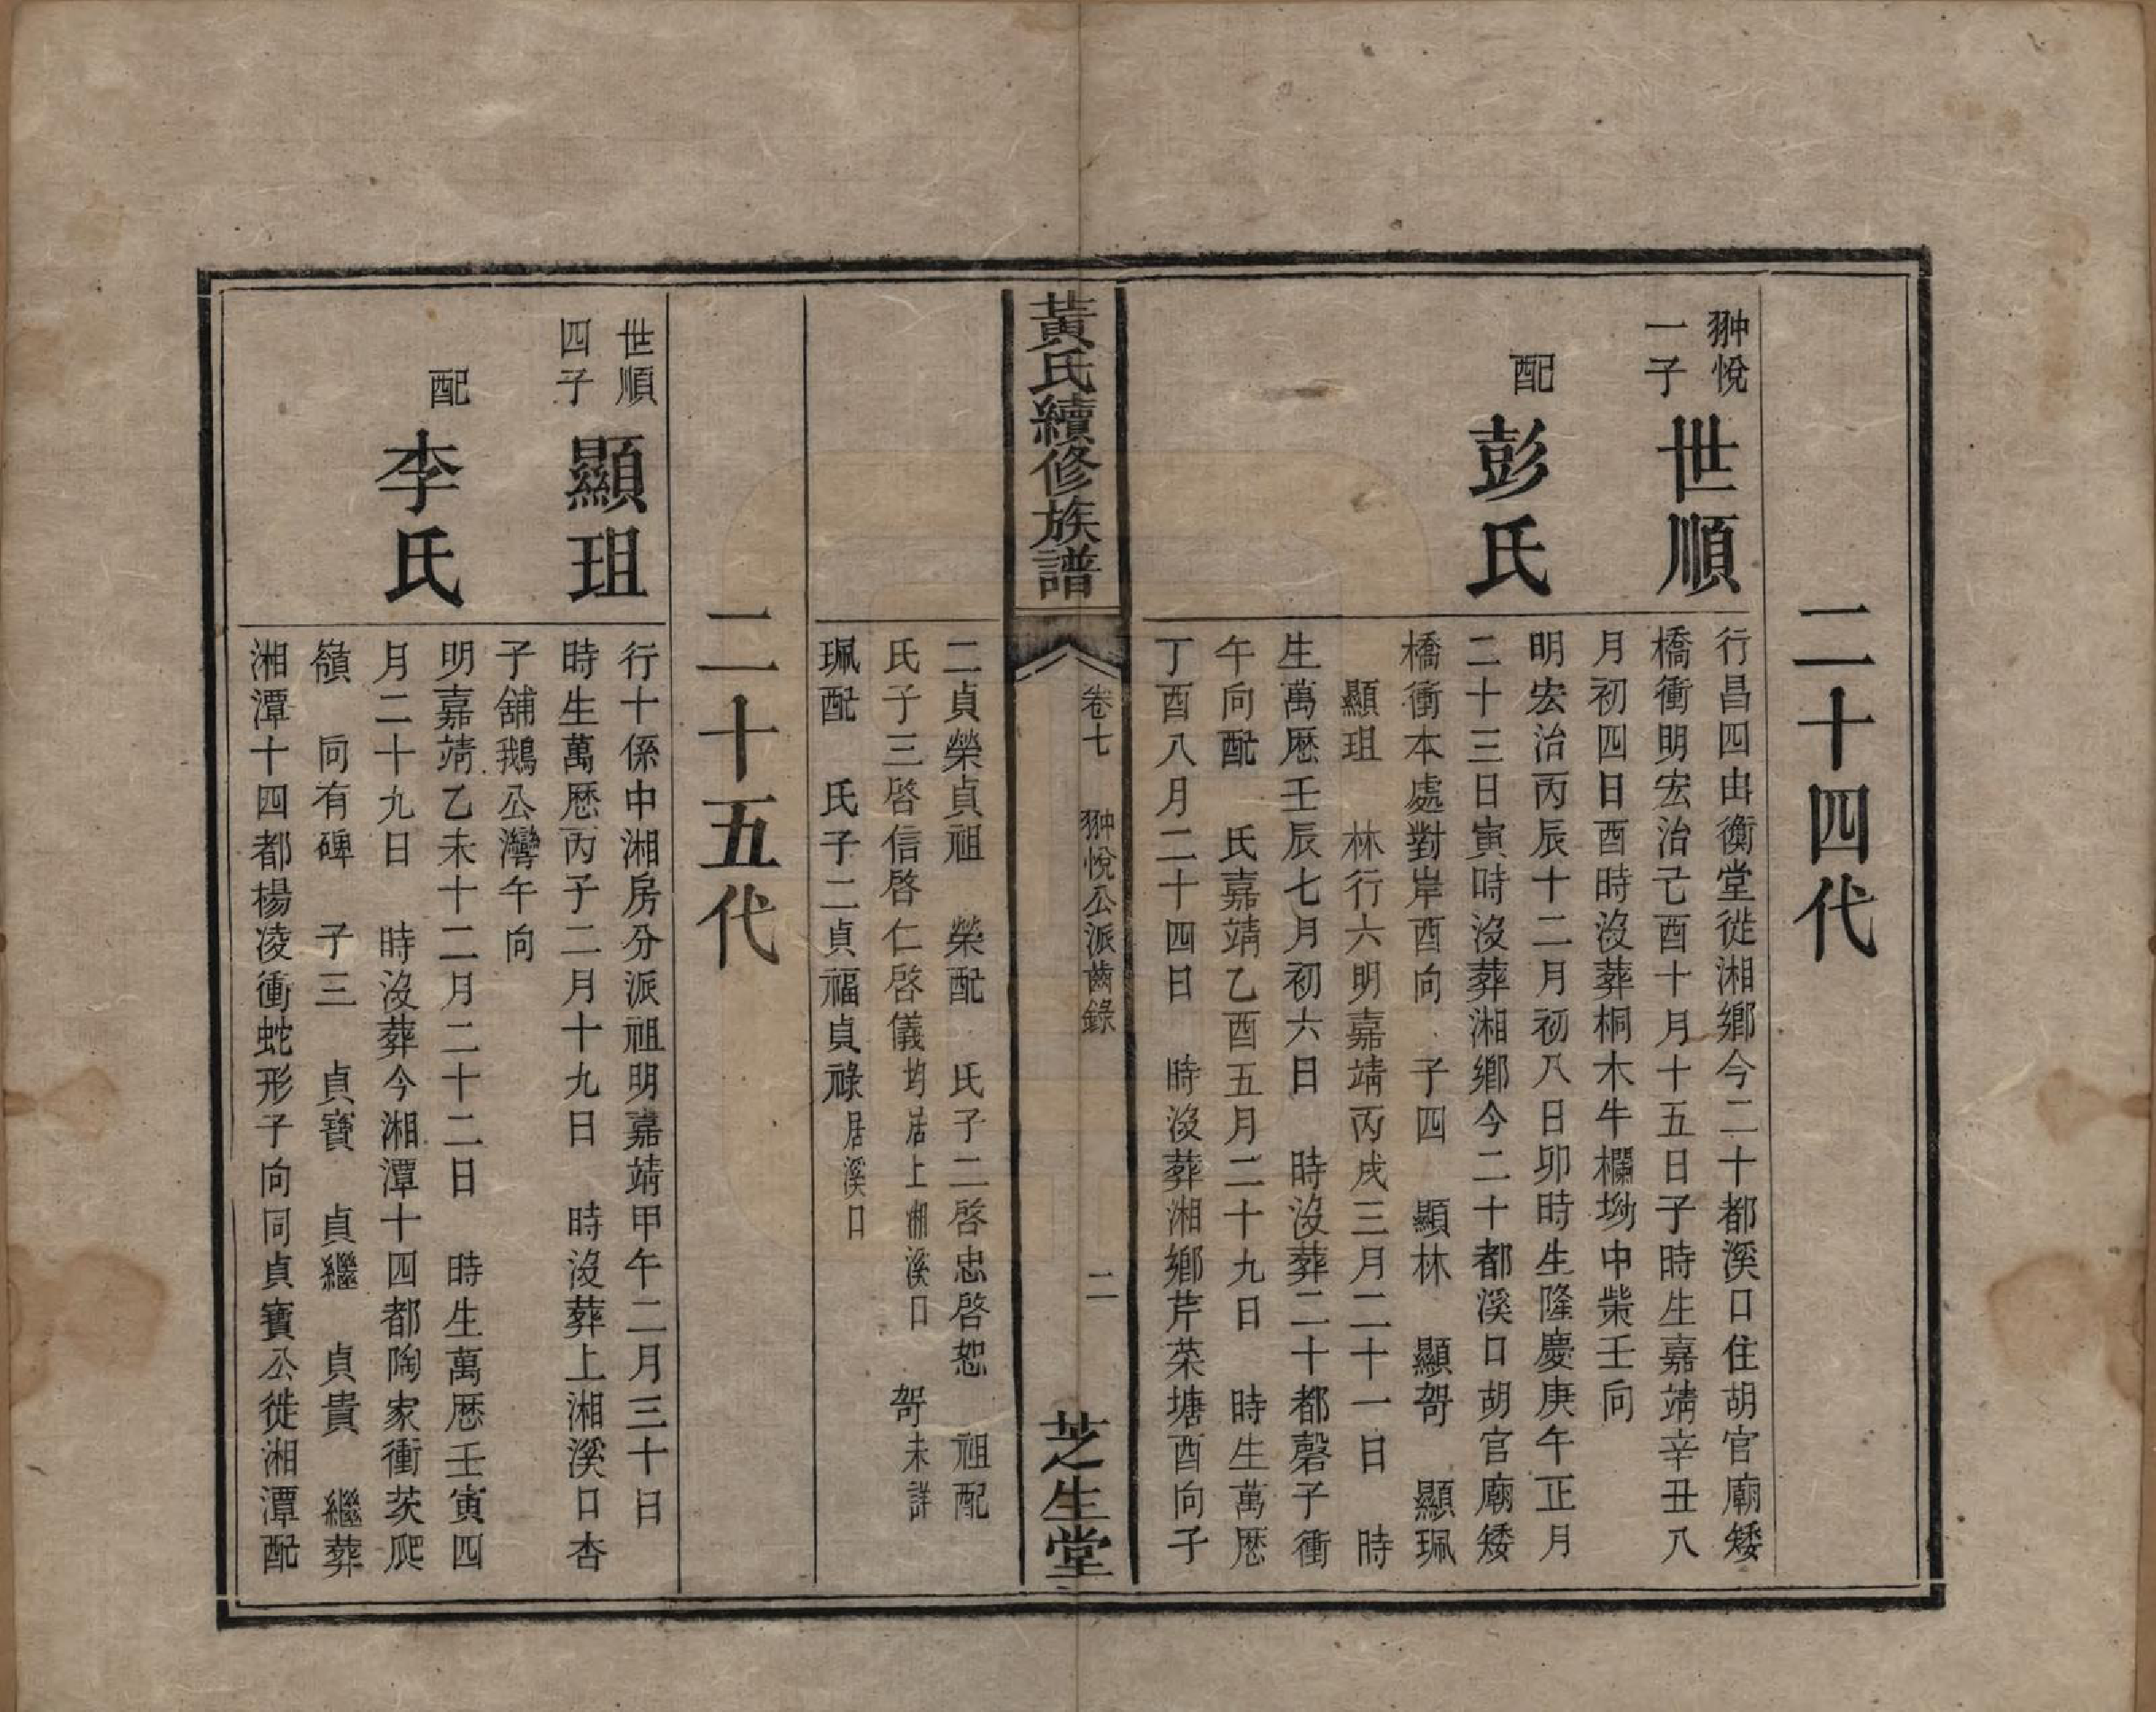 二十四代
翀悅
一子
世順
行昌四由衡堂徙湘鄉今二十都溪口住胡官廟矮
橋衝明宏治己酉十月十五日子時生嘉靖辛丑八
月初四日酉時沒葬桐木牛欄坳中柴壬向
配
彭氏
明宏治丙辰十二月初八日卯時生隆慶庚午正月
二十三日寅時沒葬湘鄉今二十都溪口胡官廟矮
橋衝本處對岸酉向 子四 顯林 顯哿 顯珮
顯珇 林行六明嘉靖丙戌三月二十一日 時
生萬歷壬辰七月初六日 時沒葬二十都磬子衝
午向配 氏嘉靖乙酉五月二十九日 時生萬歷
丁酉八月二十四日 時沒葬湘鄉芹菜塘酉向子
黃氏續修族譜
卷七 翀悅公派齒錄
二
芝生堂
二貞榮貞祖 榮配 氏子二啓忠啓恕 祖配
氏子三啓信啓仁啓儀均居上湘溪口 哿未詳
珮配 氏子二貞福貞祿居溪口
二十五代
世順
四子
顯珇
行十係中湘房分派祖明嘉靖甲午二月三十日
時生萬歷丙子二月十九日 時沒葬上湘溪口杏
子舖鵝公灣午向
配
李氏
明嘉靖乙未十二月二十二日 時生萬歷壬寅四
月二十九日 時沒葬今湘潭十四都陶家衝茨爬
嶺 向有碑 子三 貞寶 貞繼 貞貴 繼葬
湘潭十四都楊凌衝蛇形子向同貞寶公徙湘潭配